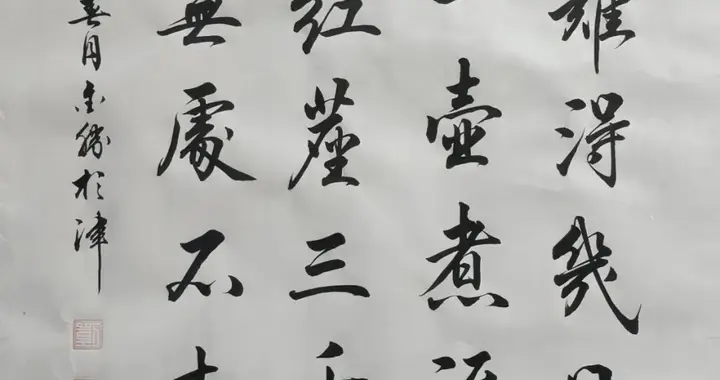 難得幾
壺煮
紅塵三
無處不
春月金勝於津